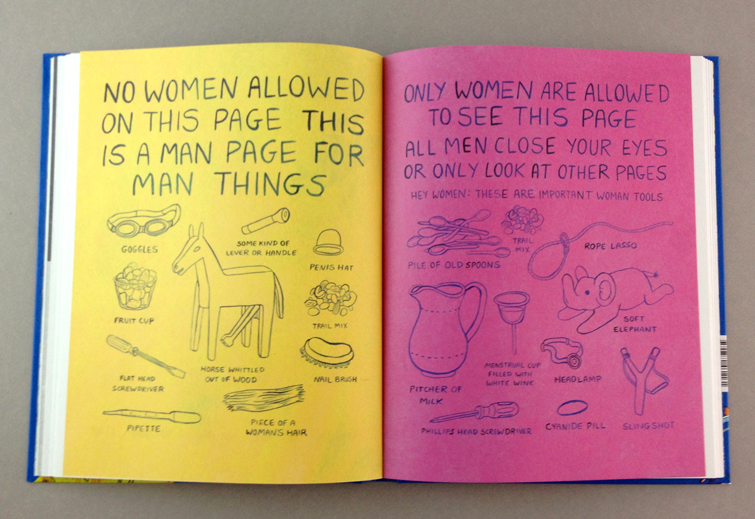 NO WOMEN ALLOWED
ON THIS PAGE THIS
IS A MAN PAGE FOR
MAN THINGS
GOGGLES
SOME KIND OF
LEVER OR HANDLE
PENIS HAT
FRUIT CUP
TRAIL MIX
FLAT HEAD
SCREWDRIVER
HORSE WHITTLED
OUT OF WOOD
NAIL BRUSH
PIPETTE
PIECE OF A
WOMAN'S HAIR
ONLY WOMEN ARE ALLOWED
TO SEE THIS PAGE
ALL MEN CLOSE YOUR EYES
OR ONLY LOOK AT OTHER PAGES
HEY WOMEN: THESE ARE IMPORTANT WOMAN TOOLS
PILE OF OLD SPOONS
TRAIL
MIX
ROPE LASSO
SOFT
ELEPHANT
PITCHER OF
MILK
MENSTRUAL CUP
FILLED WITH
WHITE WINE
HEADLAMP
PHILLIPS HEAD SCREWDRIVER
CYANIDE PILL
SLINGSHOT